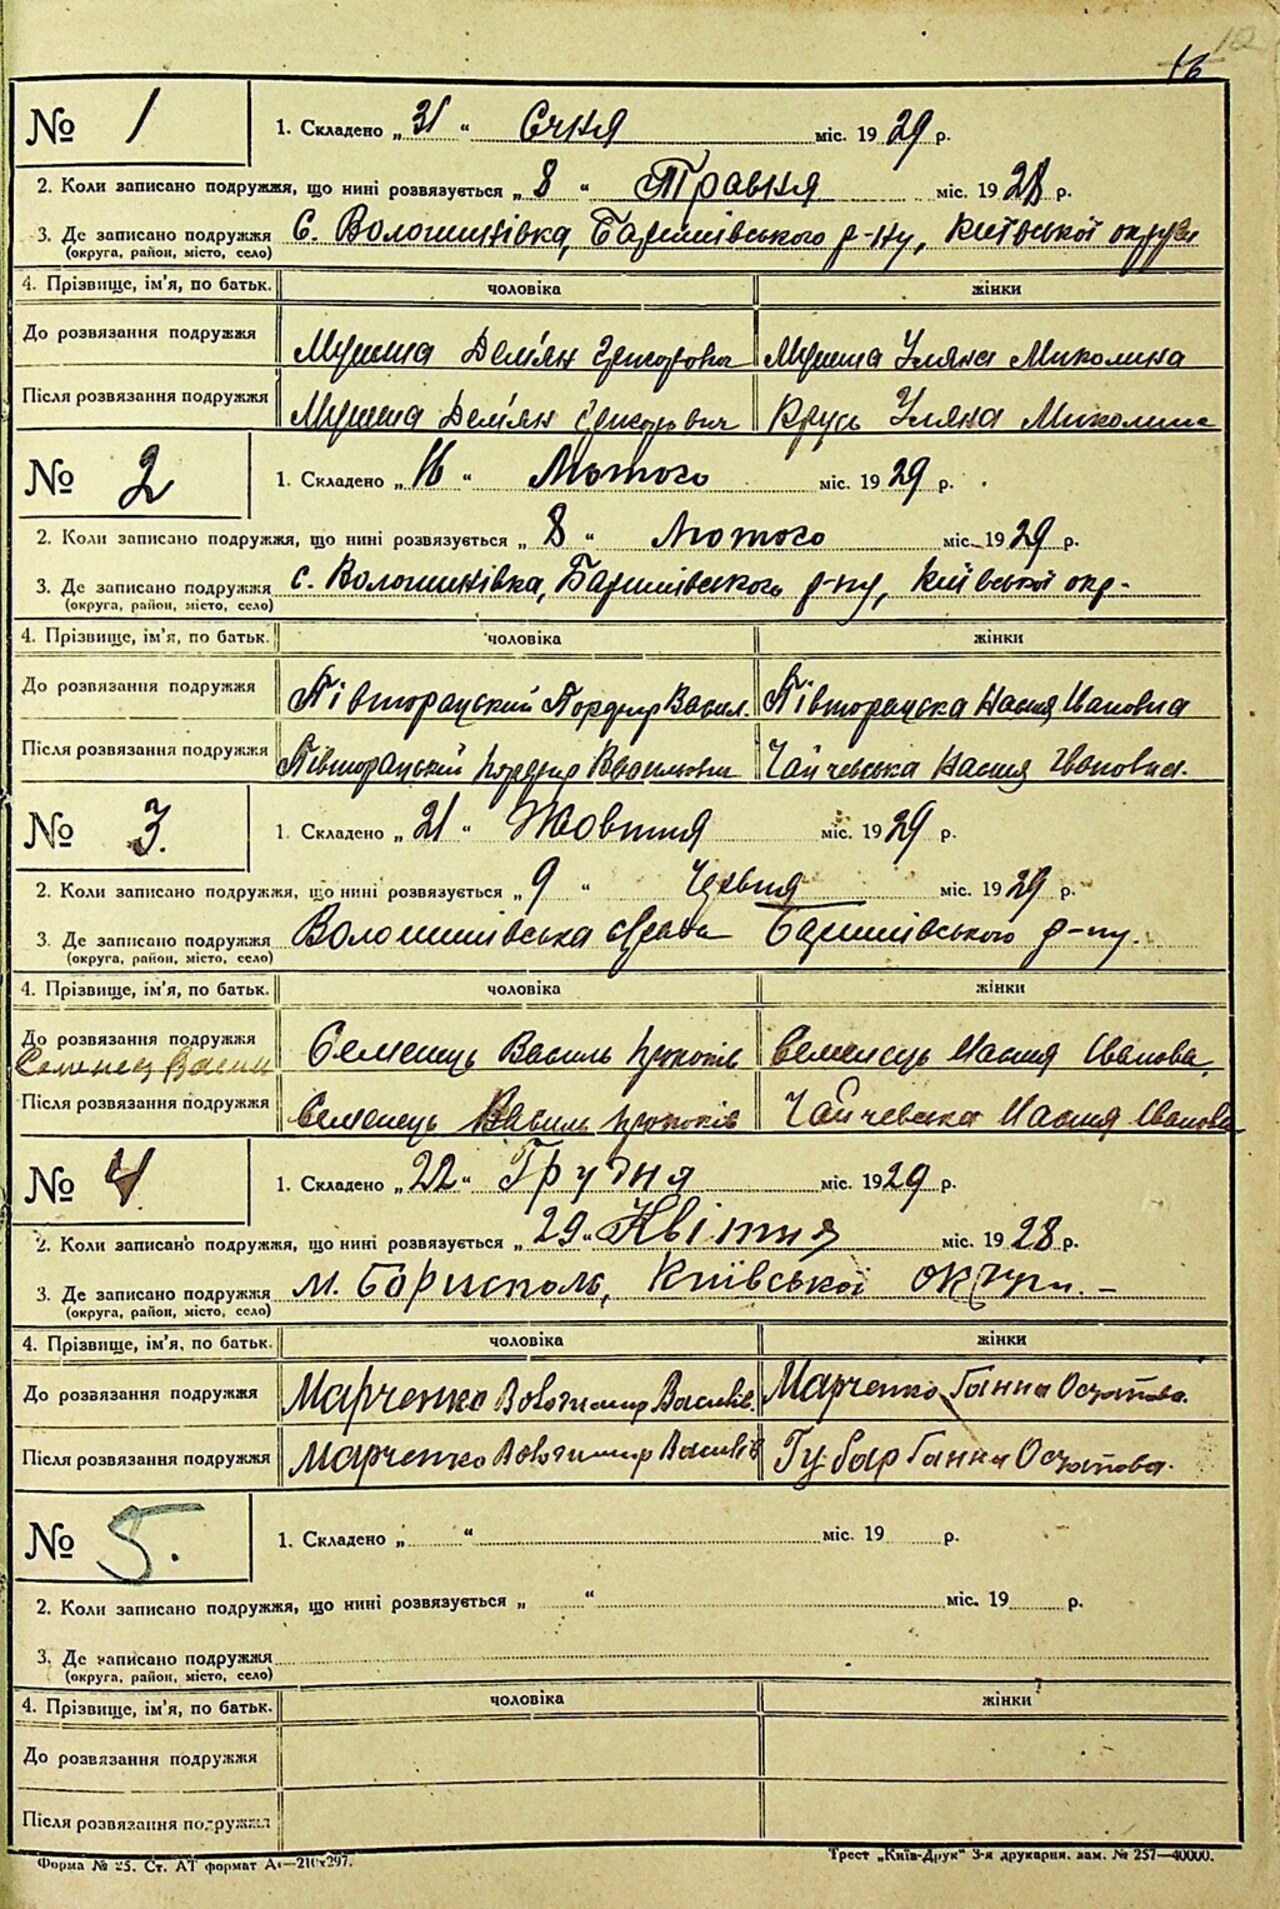 16 12
№ 1
1. Складено „31“ Січня міс. 1929 р.
2. Коли записано подружжя, що нині розвязується „8“ Травня міс. 1928 р.
3. Де записано подружжя с. Волошинівка, Баришівського р-ну, Київської округи
(округа, район, місто, село)
4. Прізвище, ім'я, по батьк. чоловіка жінки
До розвязання подружжя Мумша Дем'ян Григорович Мумша Уляна Миколина
Після розвязання подружжя Мумша Дем'ян Григорович Крусь Уляна Миколина
№ 2
1. Складено „16“ Лютого міс. 1929 р.
2. Коли записано подружжя, що нині розвязується „8“ Лютого міс. 1929 р.
3. Де записано подружжя с. Волошинівка, Баришівського р-ну, Київської окр-
(округа, район, місто, село)
4. Прізвище, ім'я, по батьк. чоловіка жінки
До розвязання подружжя Півторацький Порфир Васил. Півторацька Настя Івановна
Після розвязання подружжя Півторацький Порфир Васильович Чайчевська Настя Івановна.
№ 3.
1. Складено „21“ Жовтня міс. 1929 р.
2. Коли записано подружжя, що нині розвязується „9“ Червня міс. 1929 р.
3. Де записано подружжя Волошинівська с/рада Баришівського р-ну.
(округа, район, місто, село)
4. Прізвище, ім'я, по батьк. чоловіка жінки
До розвязання подружжя Семенець Василь Прокопів Семенець Настя Іванова.
Семенец Васил
Після розвязання подружжя Семенець Василь Прокопів Чайчевська Настя Іванова
№ 4.
1. Складено „22“ Грудня міс. 1929 р.
2. Коли записано подружжя, що нині розвязується „29“ Квітня міс. 1928 р.
3. Де записано подружжя м. Бориспіль, Київської округи. –
(округа, район, місто, село)
4. Прізвище, ім'я, по батьк. чоловіка жінки
До розвязання подружжя Марченко Володимир Василів. Марченко Ганна Осипова.
Після розвязання подружжя Марченко Володимир Василів Губар Ганна Осипова.
№ 5.
1. Складено „ “ міс. 19 р.
2. Коли записано подружжя, що нині розвязується „ “ міс. 19 р.
3. Де записано подружжя
(округа, район, місто, село)
4. Прізвище, ім'я, по батьк. чоловіка жінки
До розвязання подружжя
Після розвязання подружжя
Форма № 25. Ст. АТ формат А4—210×297. Трест „Київ-Друк“ 3-я друкарня. зам. № 257—40000.